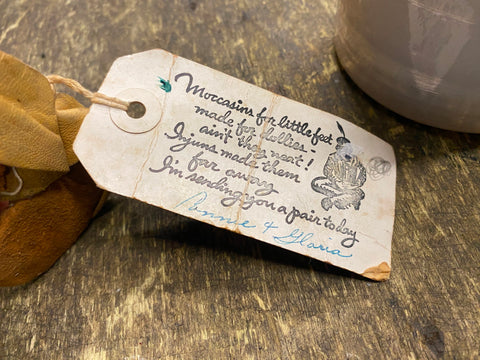 Moccasins for little feet
made for dollies -
ain't they neat!
Injuns made them
far away
I'm sending you a pair today
Connie & Gloria